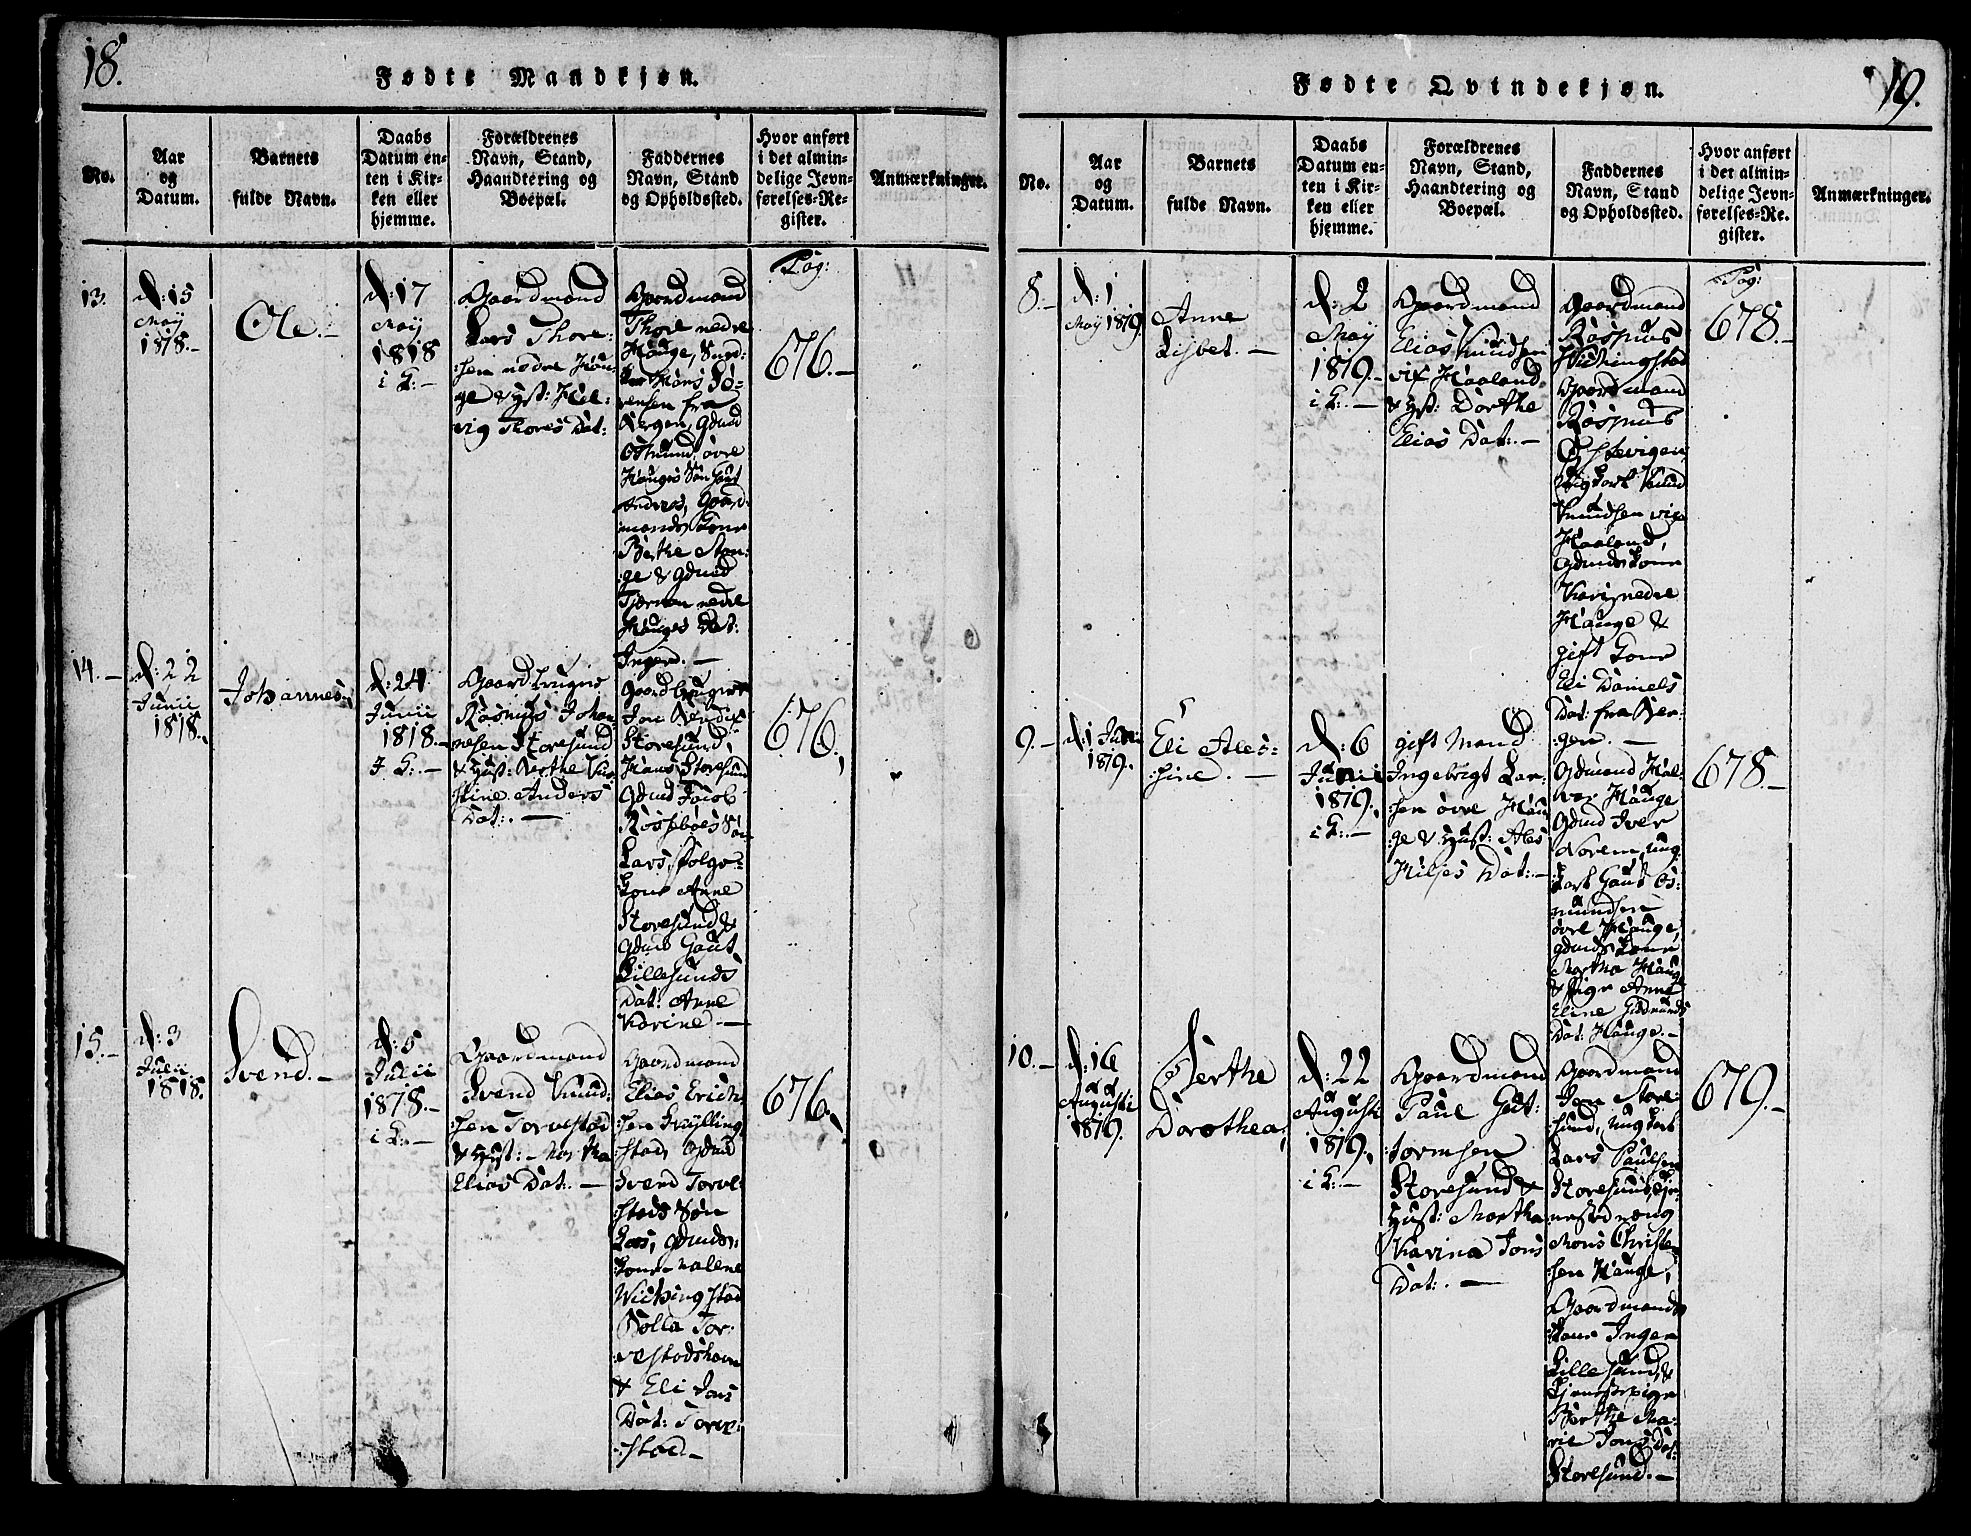 18.
Fødte Mandkjøn.
No.
Aar
og
Datum.
Barnets
fulde Navn.
Daabs
Datum en-
ten i Kir-
ken eller
hjemme.
Forældrenes
Navn, Stand,
Haandtering og
Boepæl.
Faddernes
Navn, Stand
og Opholdssted.
Hvor anført
i det almin-
delige Jevn-
førelses-Re-
gister.
Anmærkninger.
13.
d: 15
May
1818.-
Ole.-
d: 17
May
1818
i K:-
Gaardmand
Lars Thore-
:sen nedre Hau-
ge & Hust: Hel-
vig Thores Dat:
Gaardmand
Thore nedre
Hauge,
Hans Sö-
rensen fra
Bergen, Gdmd
Osmund övre
Hauges Sön Gaut
Andreas, Gaard-
mands Kone
Berthe Stan-
ge & Gdmd
nedre
Hauges Dat:
Inger.-
Pag:
676.-
14.-
d: 22
Junii
1818.
Johannes.
d: 24
Junii
1818.-
I K:-
Gaardbruger
Rasmus Johan-
nesen Storesund
& Hust: Berthe Kir-
stine Anders
Dat:.-
Gaardbruger
Jon
Storesund,
Hans Storesund
Gdmd Jacob
Rosseböes Sön
Lars,
Kone Anne
Storesund &
Gdmd Gaut
Lillesunds
Dat: Anne
Karine.-
676.
15.-
d: 3
Julii
1818.
Svend.-
d: 5
Julii
1818.-
i K:-
Gaardmand
Svend Knud-
:sen Torvestad
& Hust: Martha
Elias Dat:.-
Gaardmand
Elias Erich-
:sen
:stad, Gdmd
Svend Torve-
stads Sön
Lars, Gdmds
Kone Malene
Wichingstad
Torvestad
& Eli Jans
Dat: Torve-
:stad.-
676.
19.
Fødte Qvindekjøn.
No.
Aar
og
Datum.
Barnets
fulde Navn.
Daabs
Datum en-
ten i Kir-
ken eller
hjemme.
Forældrenes
Navn, Stand,
Haandtering og
Boepæl.
Faddernes
Navn, Stand
og Opholdssted.
Hvor anført
i det almin-
delige Jevn-
førelses-Re-
gister.
Anmærkninger.
8.-
d: 1
May 1819.
Anne
Lisbet.-
d: 2
May
1819.-
i K:-
Gaardmand
Elias Knudsen
vix Haaland
& Hust: Dorthe
Elias Dat:.-
Gaardmand
Rasmus
Wichingstad
Gaardmand
Rasmus
Östevigen,
Ungkarl Knud
Knudsen vix
Haaland,
Gdmds Kone
Kari nedre
Hauge &
gift Kone
Eli Daniels
Dat: fra Ber-
:gen.-
Pag:
678.-
9.-
d: 1 Juni
1819.
Eli Ales-
:sine.-
d: 6
Junii
1819.
i K:-
gift Mand
Ingebrigt Lar-
:sen övre Hau-
ge & Hust: Ales
Hiljes Dat:.-
Gdmand Hal-
vor Hauge
Gdmd Iver
Norem, Ung-
karl Gaut Os-
mundsen
övre Hauge,
Gdmds Kone
Martha Hauge
& Pige Anne
Eline Gudmunds
Dat: Hauge.-
678.-
10.-
d: 16
Augusti
1819.
Berthe
Dorothea.
d: 22
Augusti
1819.
i K:-
Gaardmand
Paul Gut-
:tormsen
Storesund &
Hust: Martha
Karina Jons
Dat:.-
Gaardmand
Jon Store-
:sund, Ungkarl
Lars Paulsen
Storesund, tje-
nestedreng
Mons Christe-
:sen Hauge,
Gaardmands
Kone Inger
Lillesund, &
Tjenestepige
Berthe Ma-
rie Jons Dat:
Storesund.-
679.-